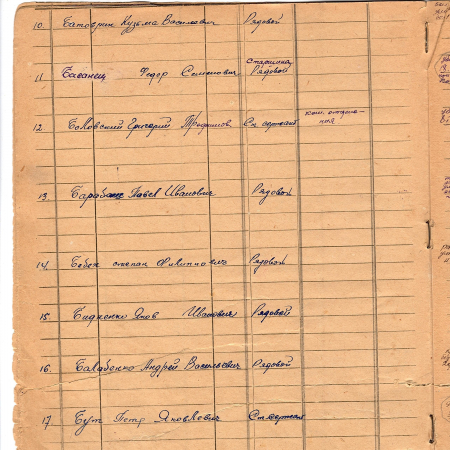 10. Батоврин Кузьма Василович Рядовой
старшина
11 Баганец Федор Семенович Рядовой
ком. отделе-
12. Боковский Григорий Трофимов Ст сержант ния
13 Барабаш Павел Иванович Рядовой
14. Бобех степан Филиппович Рядовой
15. Бидненко Яков Иванович Рядовой
16. Балабенко Андрей Васильевич Рядовой
17. Бут Петр Яковлевич Ст. сержант